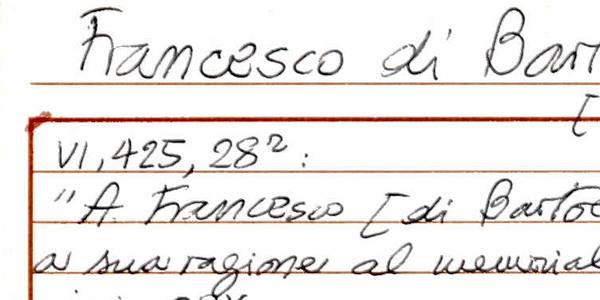 Francesco di Bart
[
VI, 425, 28²:
"A Francesco [di Bartoc
a sua ragione al memorial